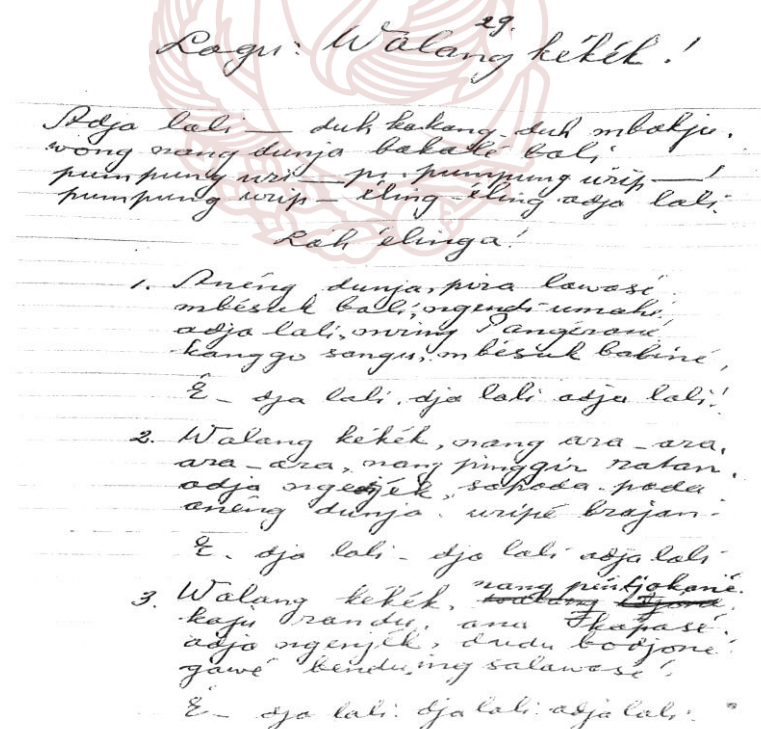 29.
Lagu: Walang kékék!
Adja lali — duh kakang - duh mbakju.
wong nang dunja bakalé bali
pumpung uri — p. pumpung urip —!
pumpung urip — éling - éling adja lali.
Lah élinga!
1. Anéng dunja, pira lawasé
mbésuk bali, ngendi umahé.
adja lali, mring Pangérané
kanggo sangu, mbésuk baliné,
É - dja lali, dja lali adja lali!
2. Walang kékék, nang ara - ara,
ara - ara, nang pinggir ratan.
adja ngenjék, sapada - pada
anéng dunja uripé brajan.
É. dja lali - dja lali adja lali
3. Walang kékék, nang péntjokané.
kaju randu, ana kapasé.
adja ngenjék, dudu bodjoné
gawé bendu, ing salawasé,
É - dja lali. dja lali. adja lali. "